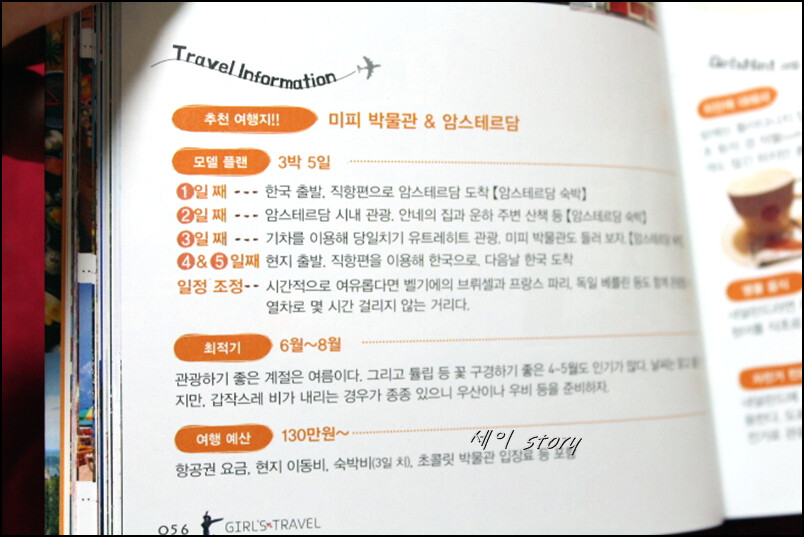 Travel Information
추천 여행지!! 미피 박물관 & 암스테르담
모델 플랜 3박 5일
1일 째 --- 한국 출발, 직항편으로 암스테르담 도착【암스테르담 숙박】
2일 째 --- 암스테르담 시내 관광, 안네의 집과 운하 주변 산책 등【암스테르담 숙박】
3일 째 --- 기차를 이용해 당일치기 유트레히트 관광. 미피 박물관도 들러 보자.【암스테르담 숙박】
4&5일째 현지 출발, 직항편을 이용해 한국으로, 다음날 한국 도착
일정 조정-- 시간적으로 여유롭다면 벨기에의 브뤼셀과 프랑스 파리, 독일 베를린 등도 함께
열차로 몇 시간 걸리지 않는 거리다.
최적기 6월~8월
관광하기 좋은 계절은 여름이다. 그리고 튤립 등 꽃 구경하기 좋은 4~5월도 인기가 많다. 날씨는
지만, 갑작스레 비가 내리는 경우가 종종 있으니 우산이나 우비 등을 준비하자.
여행 예산 130만원~
세이 story
항공권 요금, 현지 이동비, 숙박비(3일 치), 초콜릿 박물관 입장료 등 포함
056 GIRL'S TRAVEL